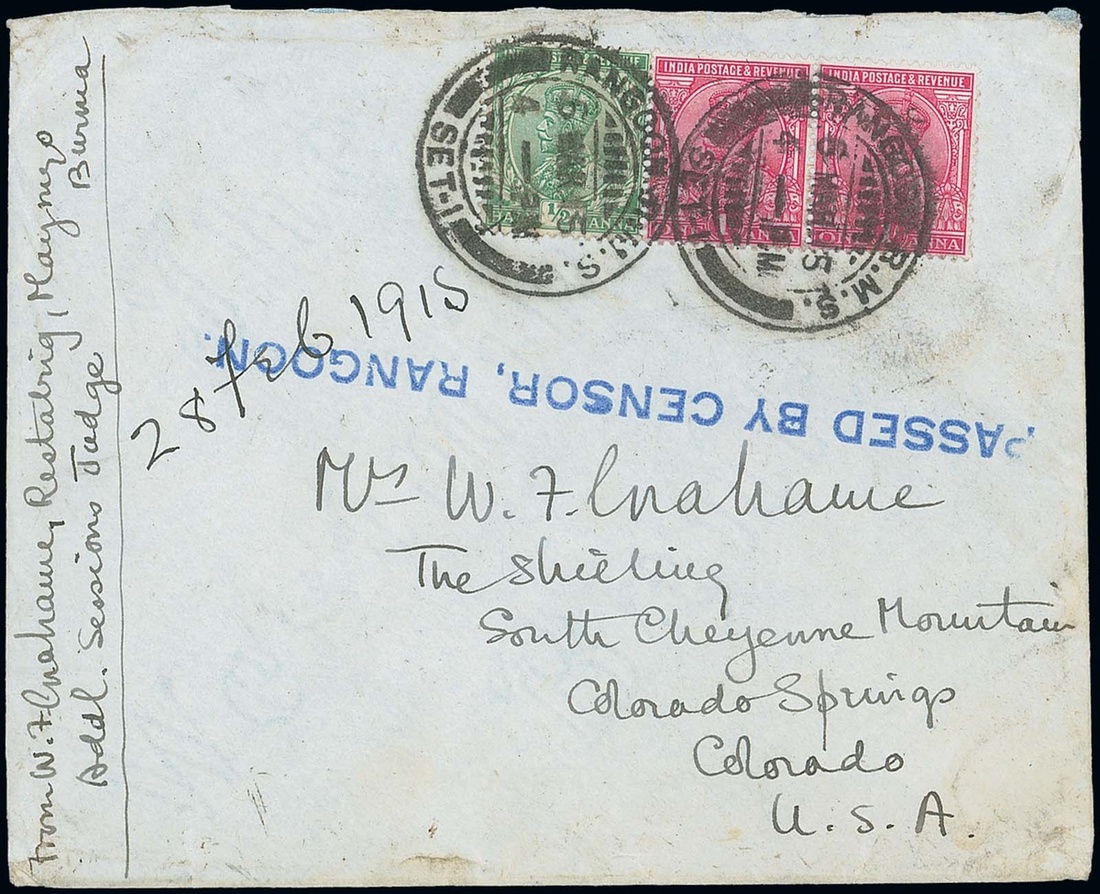 INDIA POSTAGE & REVENUE
INDIA POSTAGE & REVENUE
1/2
RANGOON R.M.S.
SET-1
RANGOON R.M.S.
28 Feb 1915
PASSED BY CENSOR, RANGOON.
Mrs W. F. Grahame
The Shieling
South Cheyenne Mountain
Colorado Springs
Colorado
U. S. A.
from W. F. Grahame, Restalrig, Maymyo
Burma
Addl. Sessions Judge